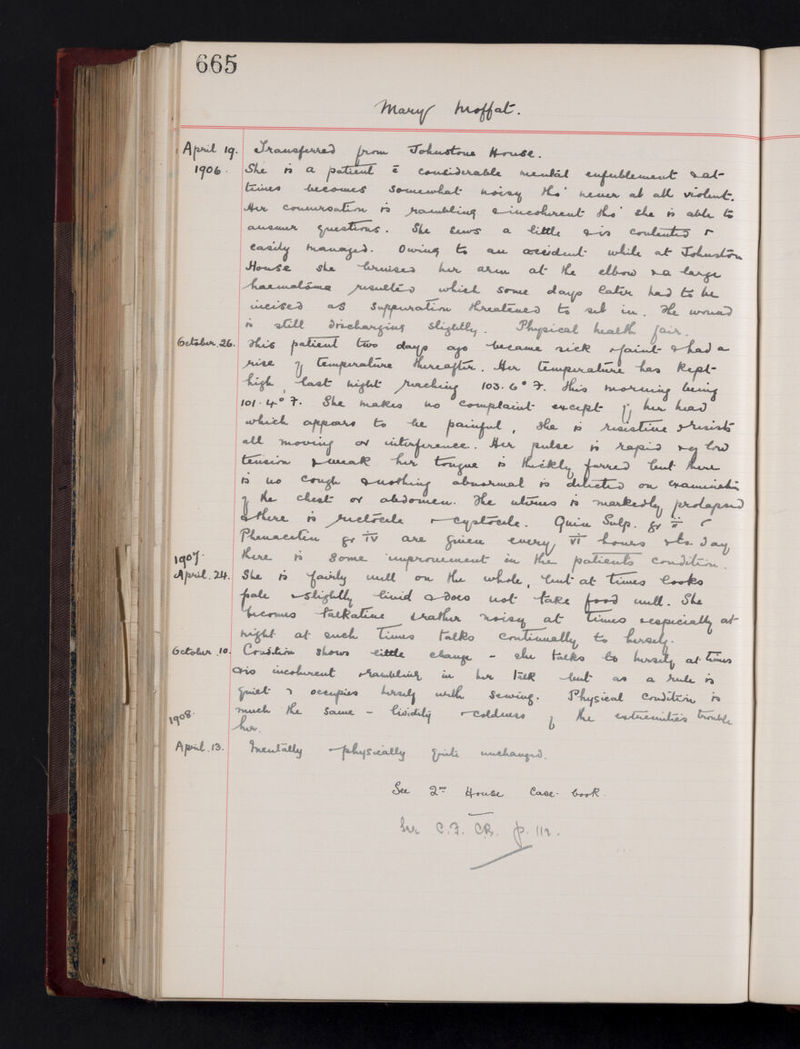 665
Mary Moffat.
April 19. Transferred from Johnstone House.
1906. She is a patient c̄ considerable mental enfeeblement & at
times becomes somewhat noisy tho' never at all violent.
Her conversation is rambling & incoherent tho' she is able to
answer questions. She sews a little & is contented &
easily managed. Owing to an accident while at Johnston
House she bruised her arm at the elbow & a large
haematoma resulted which some days later had to be
incised as suppuration threatened to set in. The wound
is still discharging slightly. Physical health fair.
October. 26. This patient two days ago became sick & faint & had a
rise of temperature thereafter. Her temperature has kept
high, last night reaching 103.6° F. this morning being
101.4° F. She makes no complaint except of her head
which appears to be painful, she is resistive & resists
all moving or interference. Her pulse is rapid & of low
tension & weak her tongue is thickly furred but there
is no cough & nothing abnormal is detected on examination
of the chest or abdomen. The uterus is markedly prolapsed
& there is rectocele & cystocele. Quin Sulp. gr ii c̄
Phenacetin gr IV are given every VI hours & to day
1907. there is some improvement in the patients condition.
April. 24. She is fairly well on the whole, but at times looks
pale & slightly livid & does not take food well. She
becomes talkative & rather noisy at times & especially at
night at such times talks continually to herself.
October. 10. Condition shows little change - she talks to herself at times
& is incoherent & rambling in her talk but as a rule is
quiet & occupies herself with sewing. Physical condition is
1908. much the same - lividity & coldness of the extremities trouble
her.
April. 13. Mentally & physically quite unchanged.
See 2nd House Case-book.
C.F. CB. p. 112.